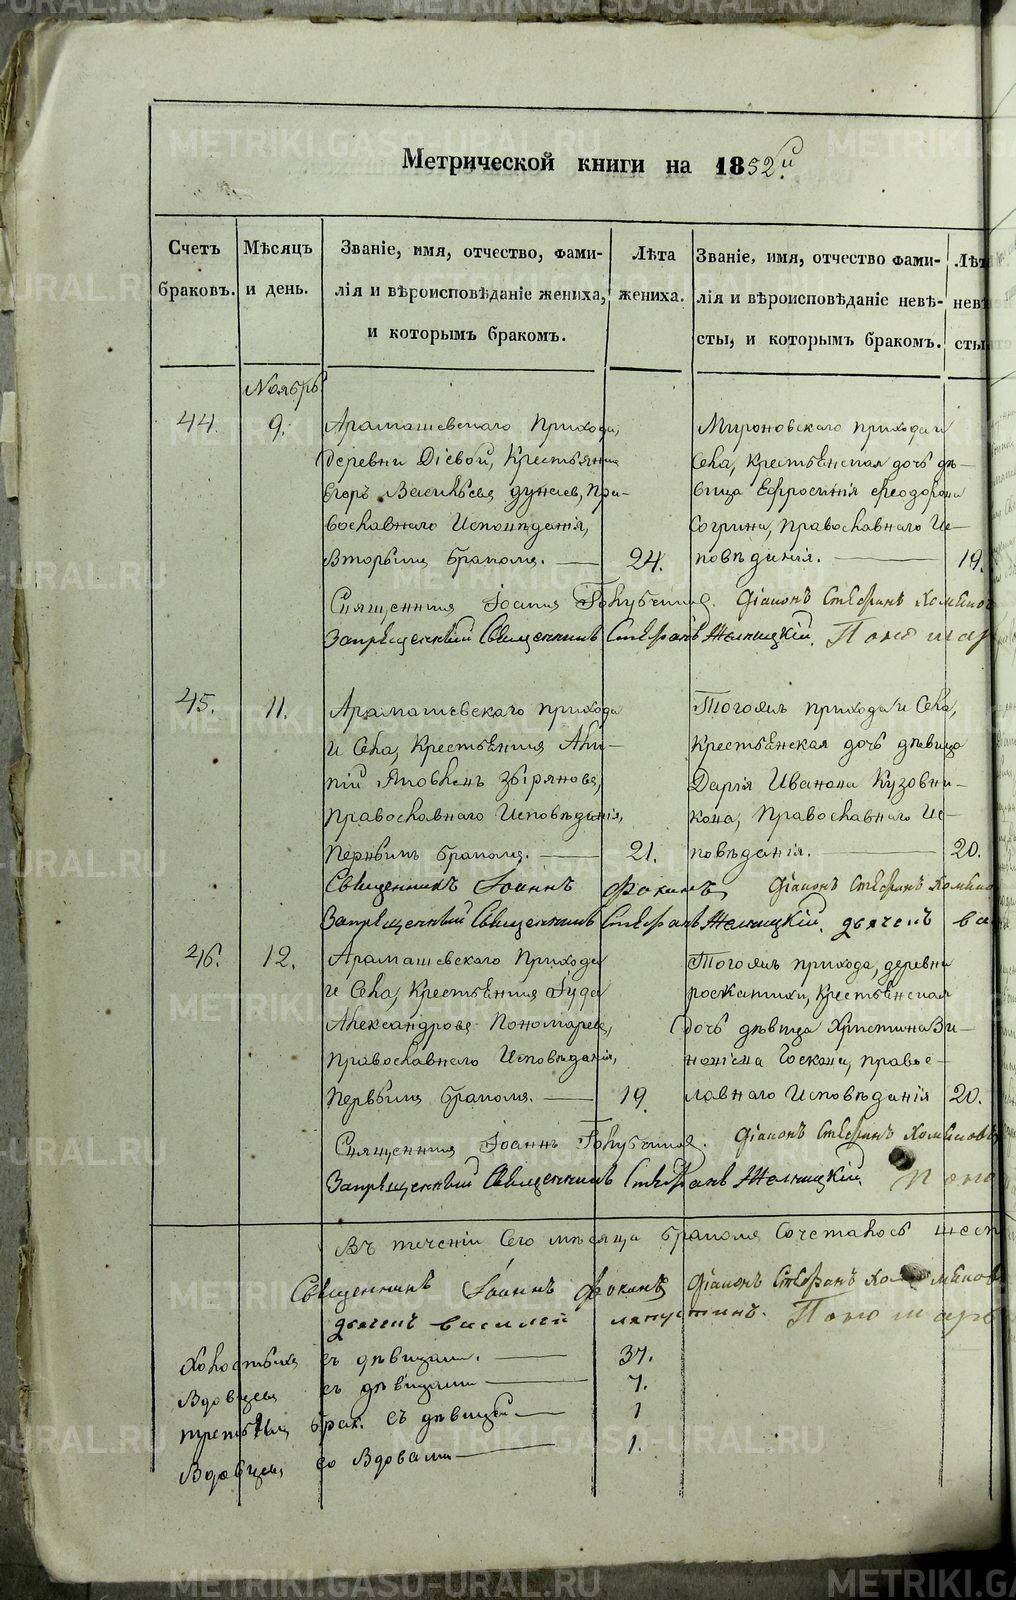 Метрической книги на 1852й.
Счетъ браковъ.
Мѣсяцъ и день.
Званіе, имя, отчество, фами-
лія и вѣроисповѣданіе жениха,
и которымъ бракомъ.
Лѣта
жениха.
Званіе, имя, отчество фами-
лія и вѣроисповѣданіе невѣ-
сты, и которымъ бракомъ.
Лѣт
невѣ
сты
Ноябрь
44.
9.
Арамашевскаго Прихода,
деревни Дiевой, Крестьянинъ
Егоръ Васильевъ Дунаевъ, Пра-
вославнаго Исповѣданія,
Вторымъ бракомъ.
24.
Мироновскаго прихода и
Села, крестьянская дочь дѣ-
вица Ефросинія Феодорова
Согрина, православнаго Ис-
повѣданія.
19.
Священникъ Іоаннъ Голубчиковъ. Діаконъ Стефанъ Хомяков
Запрещенный Священникъ Стефанъ Жемчицкій. Поно
45.
11.
Арамашевскаго прихода
и Села, Крестьянинъ Али-
пій Яковлевъ Зырянова,
православнаго Исповѣданія,
Первымъ бракомъ.
21.
Тогожъ прихода и Села,
крестьянская дочь дѣвица
Дарія Иванова Кузовни-
кова, Православнаго Ис-
повѣданія.
20.
Священникъ Іоаннъ Фокинъ, Діаконъ Стефанъ
Запрещенный Священникъ Стефанъ Жемчицкій. дьячекъ ва
46.
12.
Арамашевскаго Прихода
и Села, Крестьянинъ Іуда
Александровъ Пономаревъ,
православнаго Исповѣданія,
Первымъ бракомъ.
19.
Тогожъ прихода, деревни
роскатихи, Крестьянская
дочь дѣвица Христина Зи-
новіева православнаго Исповѣданія
20.
Священникъ Іоаннъ Голубчиковъ. Діаконъ Стефанъ Хомяковъ
Запрещенный Священникъ Стефанъ Жемчицкій. Поно
Въ теченіи Сего мѣсяца бракомъ Сочеталось
Священникъ Іоаннъ Фокинъ Діаконъ Стефанъ
дьячекъ василей ляпустинъ.
Холостыхъ съ дѣвицами. 37.
Вдовцевъ съ дѣвицами 7.
третьимъ брак. съ дѣвицей 1
Вдовцевъ со Вдовами 1.
METRIKI.GASO-URAL.RU